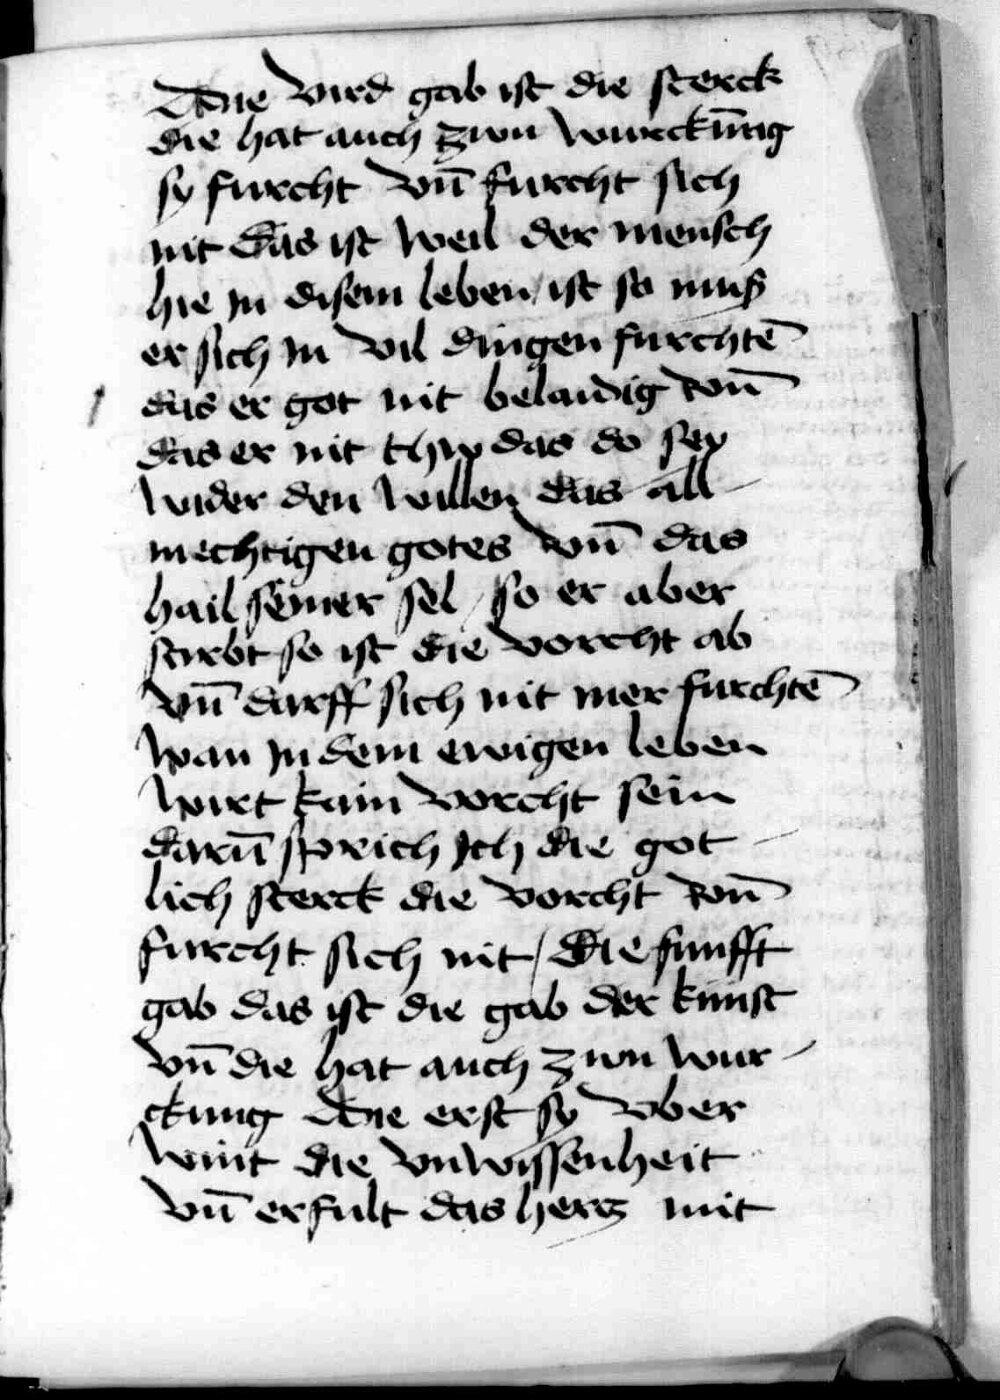 Die vird gab ist die sterck
die hat auch zwu wurckūng
sy furcht vn̄ furcht sich
nit das ist weil der mensch
hie jn disem leben / ist so muß
er sich jn vil dingen furchtē
das er got nit belaidig von̄
das er nit thw das do sey
wider den willen das all
mechtigen gotes vnn̄ das
hail seiner sel / so er aber
stirbt so ist die vorcht ab
vn̄ darff sich nit mer furchtē
wan jn dem ewigen leben
wirt kain vorcht sein
darū sprich jch die got
lich sterck die vorcht von̄
furcht sich nit / Die funfft
gab das ist die gab der kunst
vn̄ die hat auch zwu wur
ckung Die erst sy vber
wint die vnwissenheit
vn̄ erfult das hertz mit